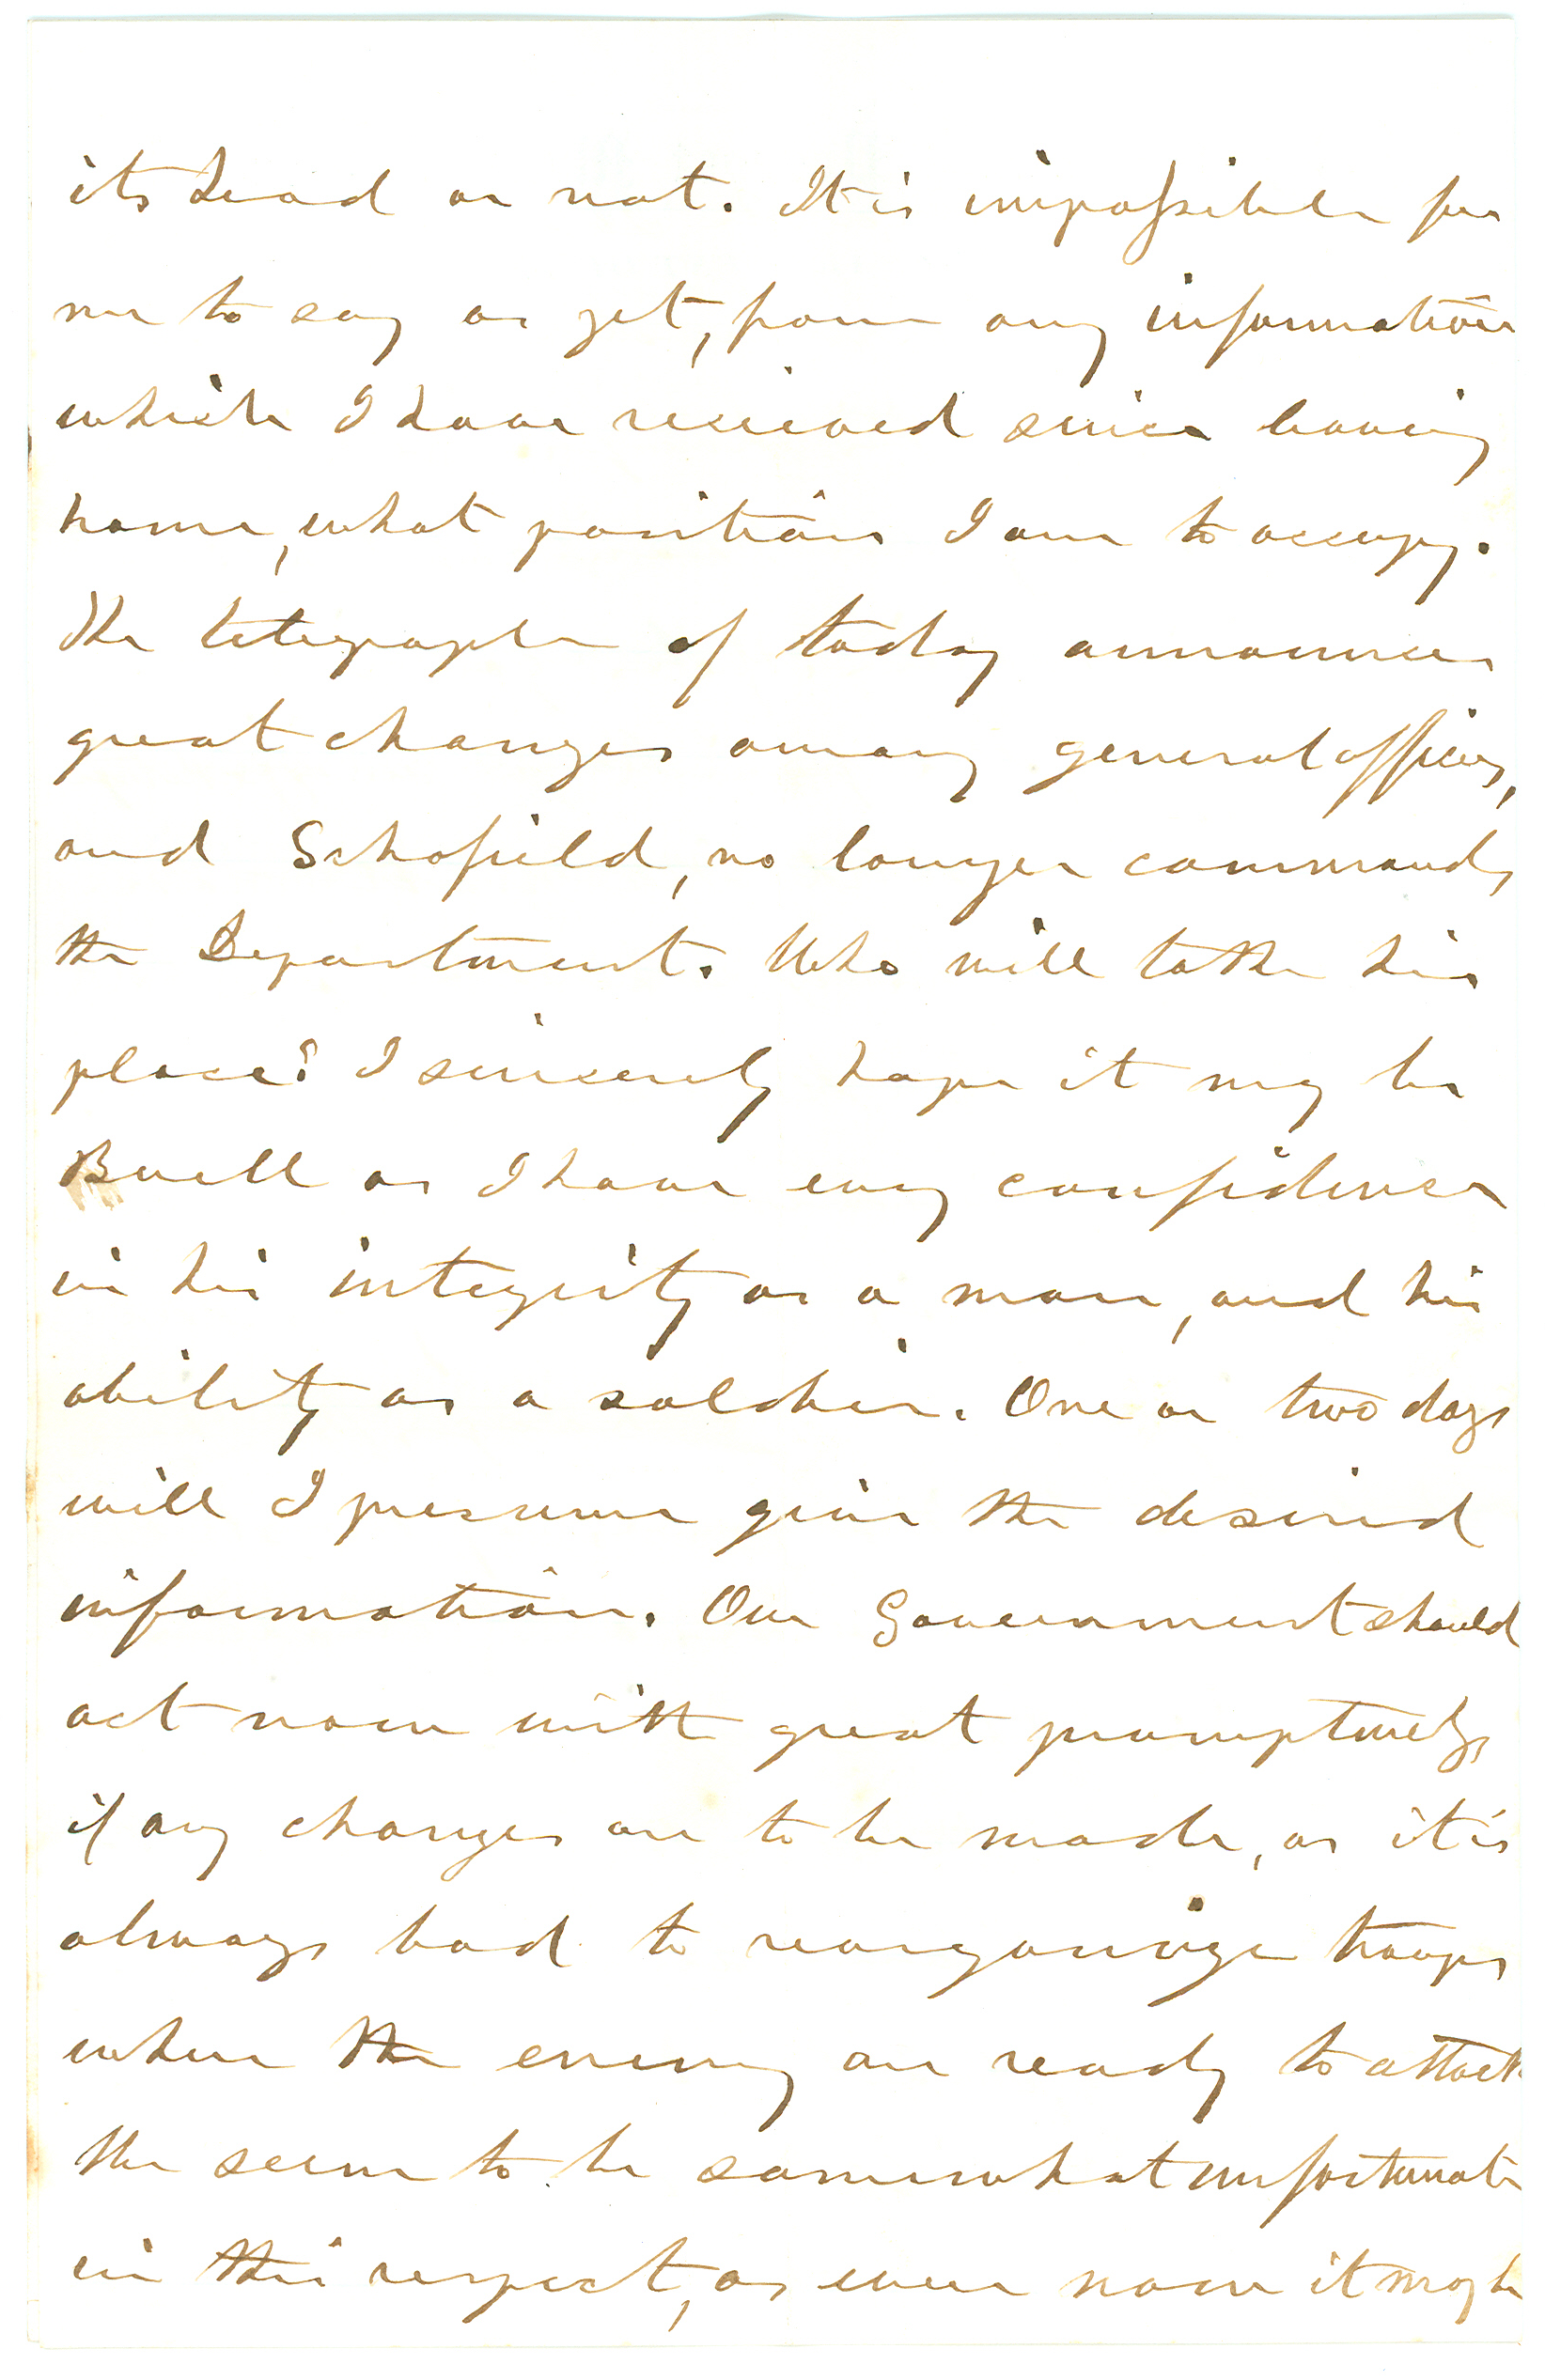 its head or not. It is impossible for
me to say as yet, from any information
which I have received since leaving
home, what position I am to occupy.
The telegraph of today announces
great changes among general officers,
and Schofield, no longer commands
the Department. Who will take his
place? I sincerely hope it may be
Buell as I have every confidence
in his integrity as a man, and his
ability as a soldier. One or two days
will I presume give the desired
information. Our Government should
act now with great promptness,
if any changes are to be made, as it is
always bad to reorganize troops
when the enemy are ready to attack
We seem to be somewhat unfortunate
in this respect, as even now it may be